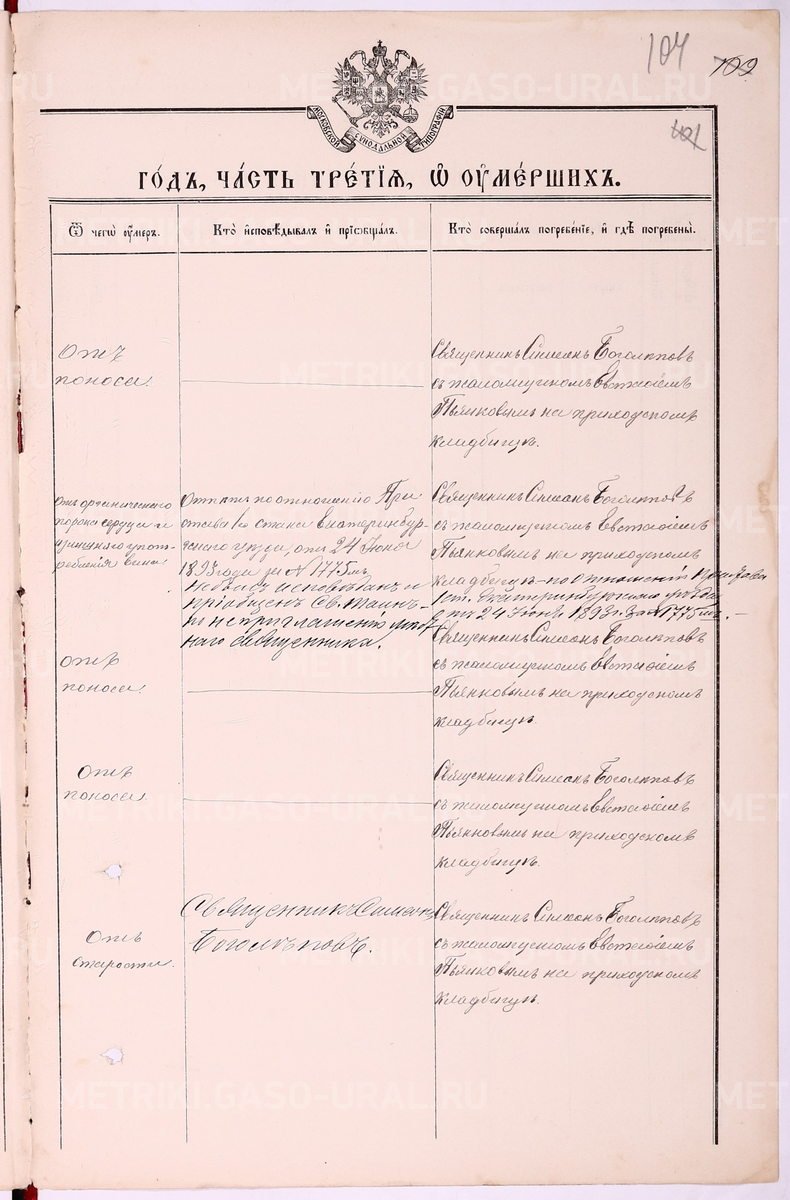 104 109
401
МОСКОВСКОЙ СѴНОДАЛЬНОЙ ТИПОГРАФІИ
ГО́ДЪ, ЧА́СТЬ ТРЕ́ТІЯ, Ѽ ОУМЕ́РШИХЪ.
Ѿ чегѡ̀ оу҆́меръ.
Кто̀ и҆сповѣ́дывалъ и҆ прїѡбща́лъ.
Кто̀ соверша́лъ погребе́нїе, и҆ гдѣ̀ погребены̀.
Отъ
поноса.
Священникъ Симеонъ Боголѣповъ
съ псаломщикомъ Евстаѳіемъ
Пьянковымъ на приходскомъ
кладбищѣ.
Отъ органическаго
порока сердца и
излишняго упот-
ребленія вина.
Отпѣтъ по отношенію При
става 1го стана Екатеринбур-
гскаго уѣзда, отъ 24 Іюня
1893 года за № 1775мъ.
Не былъ исповѣданъ и
пріобщенъ Св. Таинъ-
по неприглашенію
наго священника.
Священникъ Симеонъ Боголѣповъ
съ псаломщикомъ Евстаѳіемъ
Пьянковымъ на приходскомъ
кладбищѣ – по отношенію Пристава
1 ст. Екатеринбургскаго уѣзда
отъ 24 Іюня 1893 г. за № 1775мъ. –
Отъ
поноса.
Священникъ Симеонъ Боголѣповъ
съ псаломщикомъ Евстаѳіемъ
Пьянковымъ на приходскомъ
кладбищѣ.
Отъ
поноса.
Священникъ Симеонъ Боголѣповъ
съ псаломщикомъ Евстаѳіемъ
Пьянковымъ на приходскомъ
кладбищѣ.
Отъ
старости.
Священникъ Симеонъ
Боголѣповъ.
Священникъ Симеонъ Боголѣповъ
съ псаломщикомъ Евстаѳіемъ
Пьянковымъ на приходскомъ
кладбищѣ.
METRIKI.GASO-URAL.RU